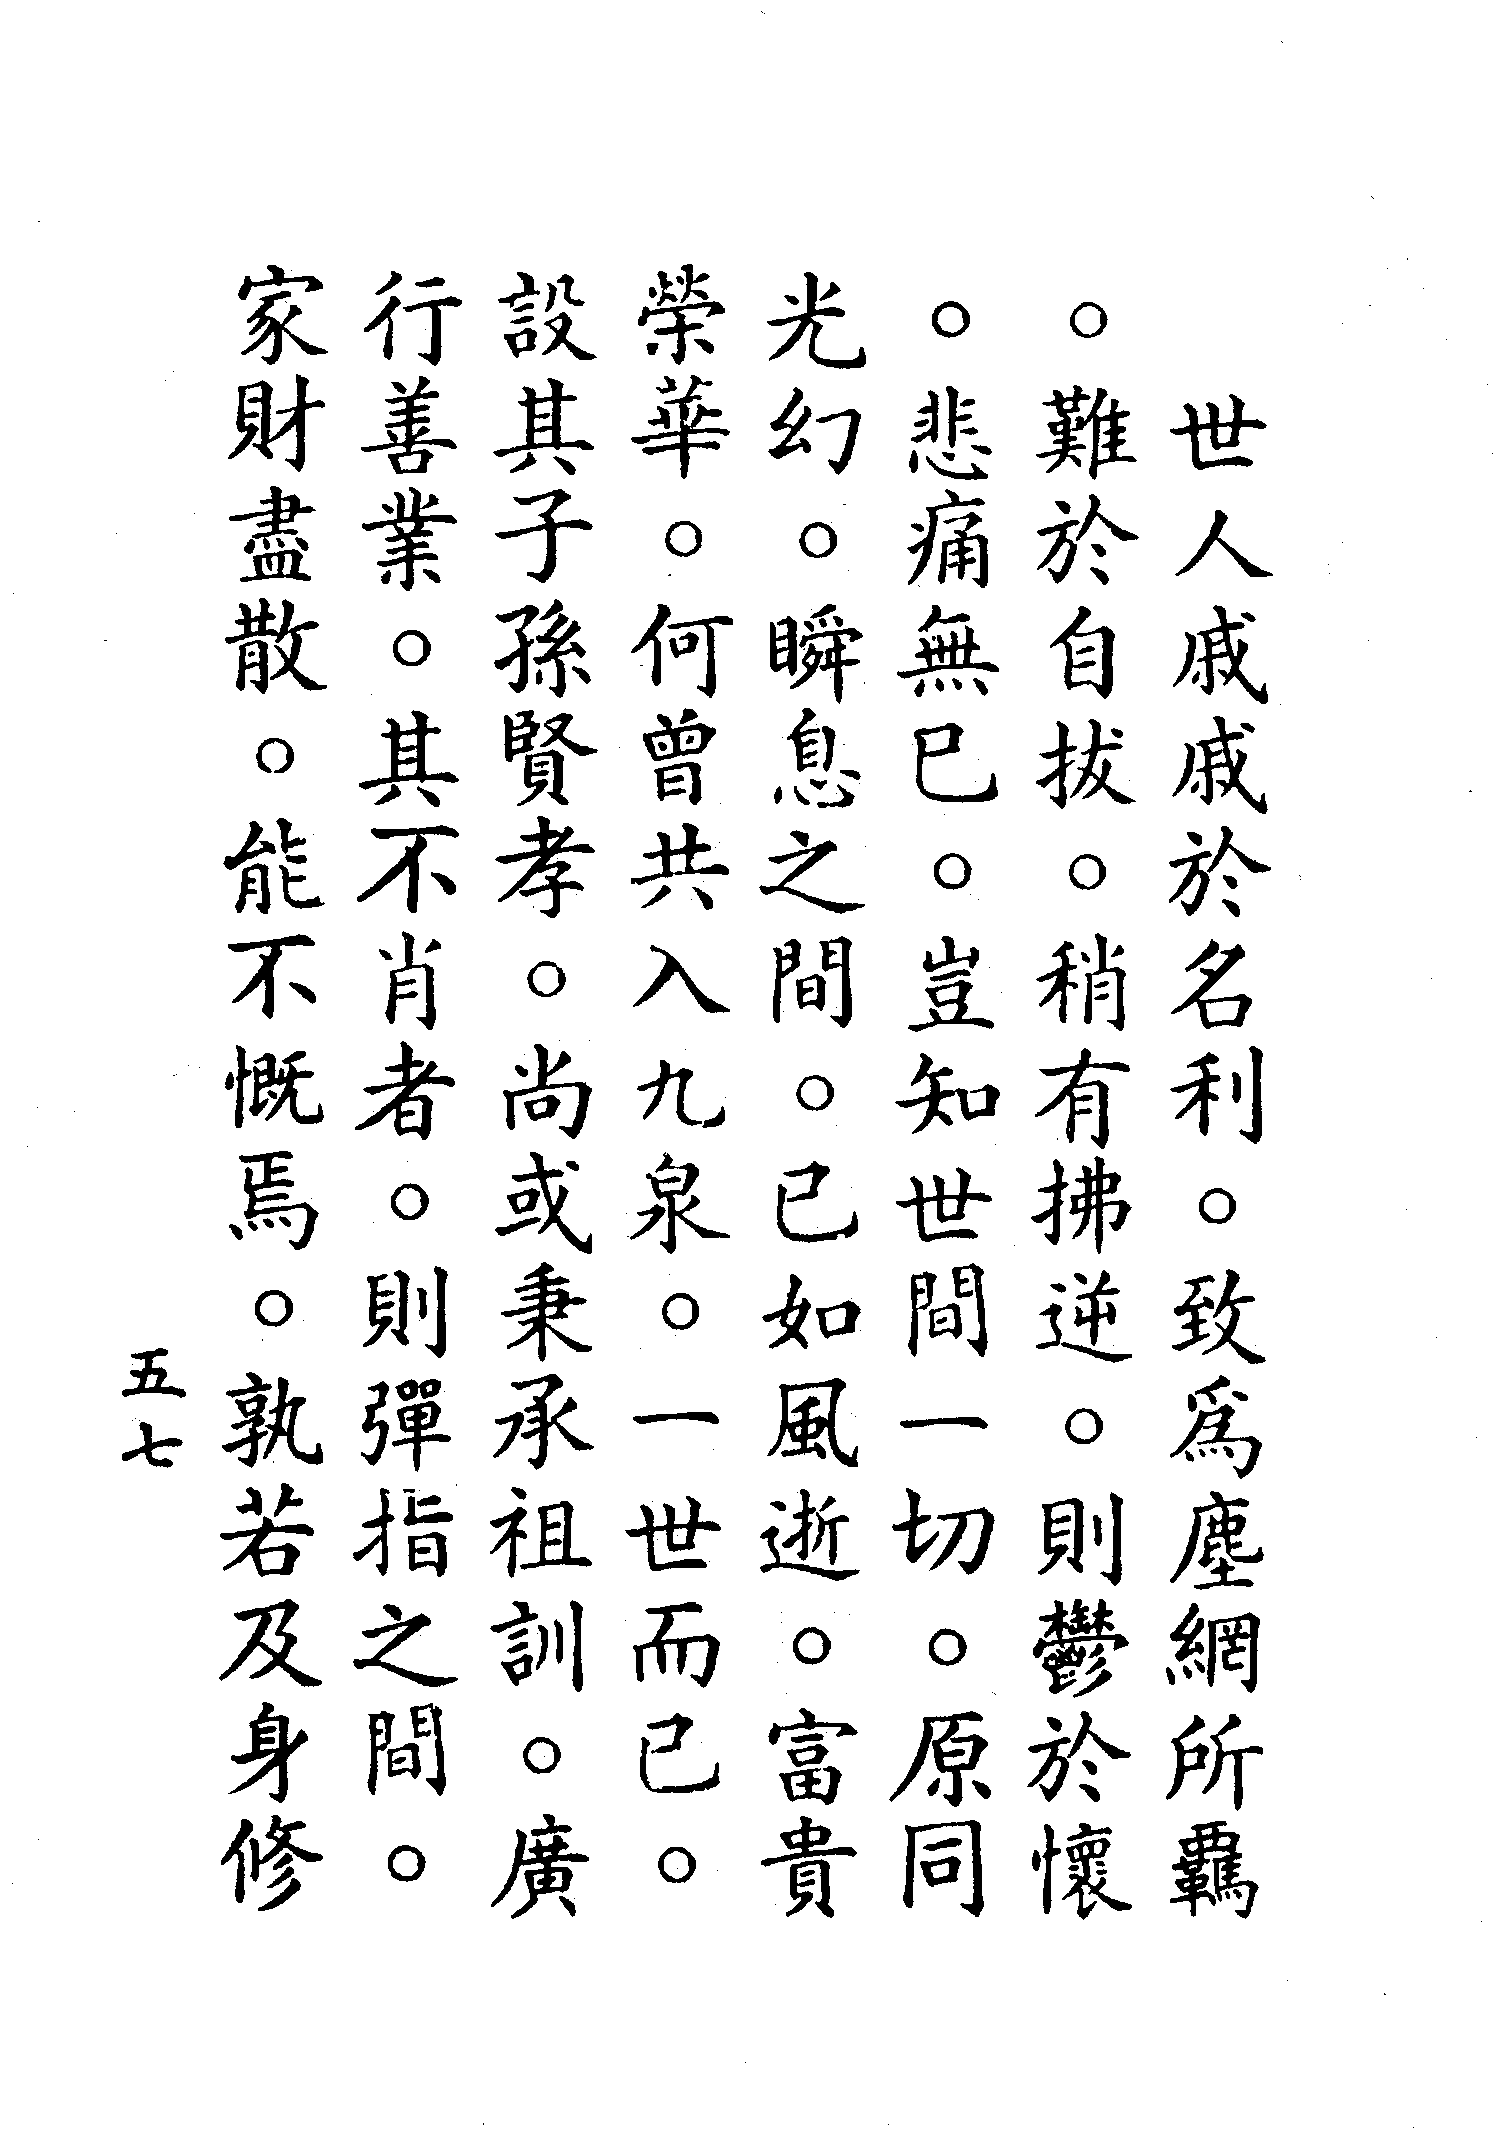 世人戚戚於名利。致爲塵網所羈
。難於自拔。稍有拂逆。則鬱於懷
。悲痛無已。豈知世間一切。原同
光幻。瞬息之間。已如風逝。富貴
榮華。何曾共入九泉。一世而已。
設其子孫賢孝。尚或秉承祖訓。廣
行善業。其不肖者。則彈指之間。
家財盡散。能不慨焉。孰若及身修
五七